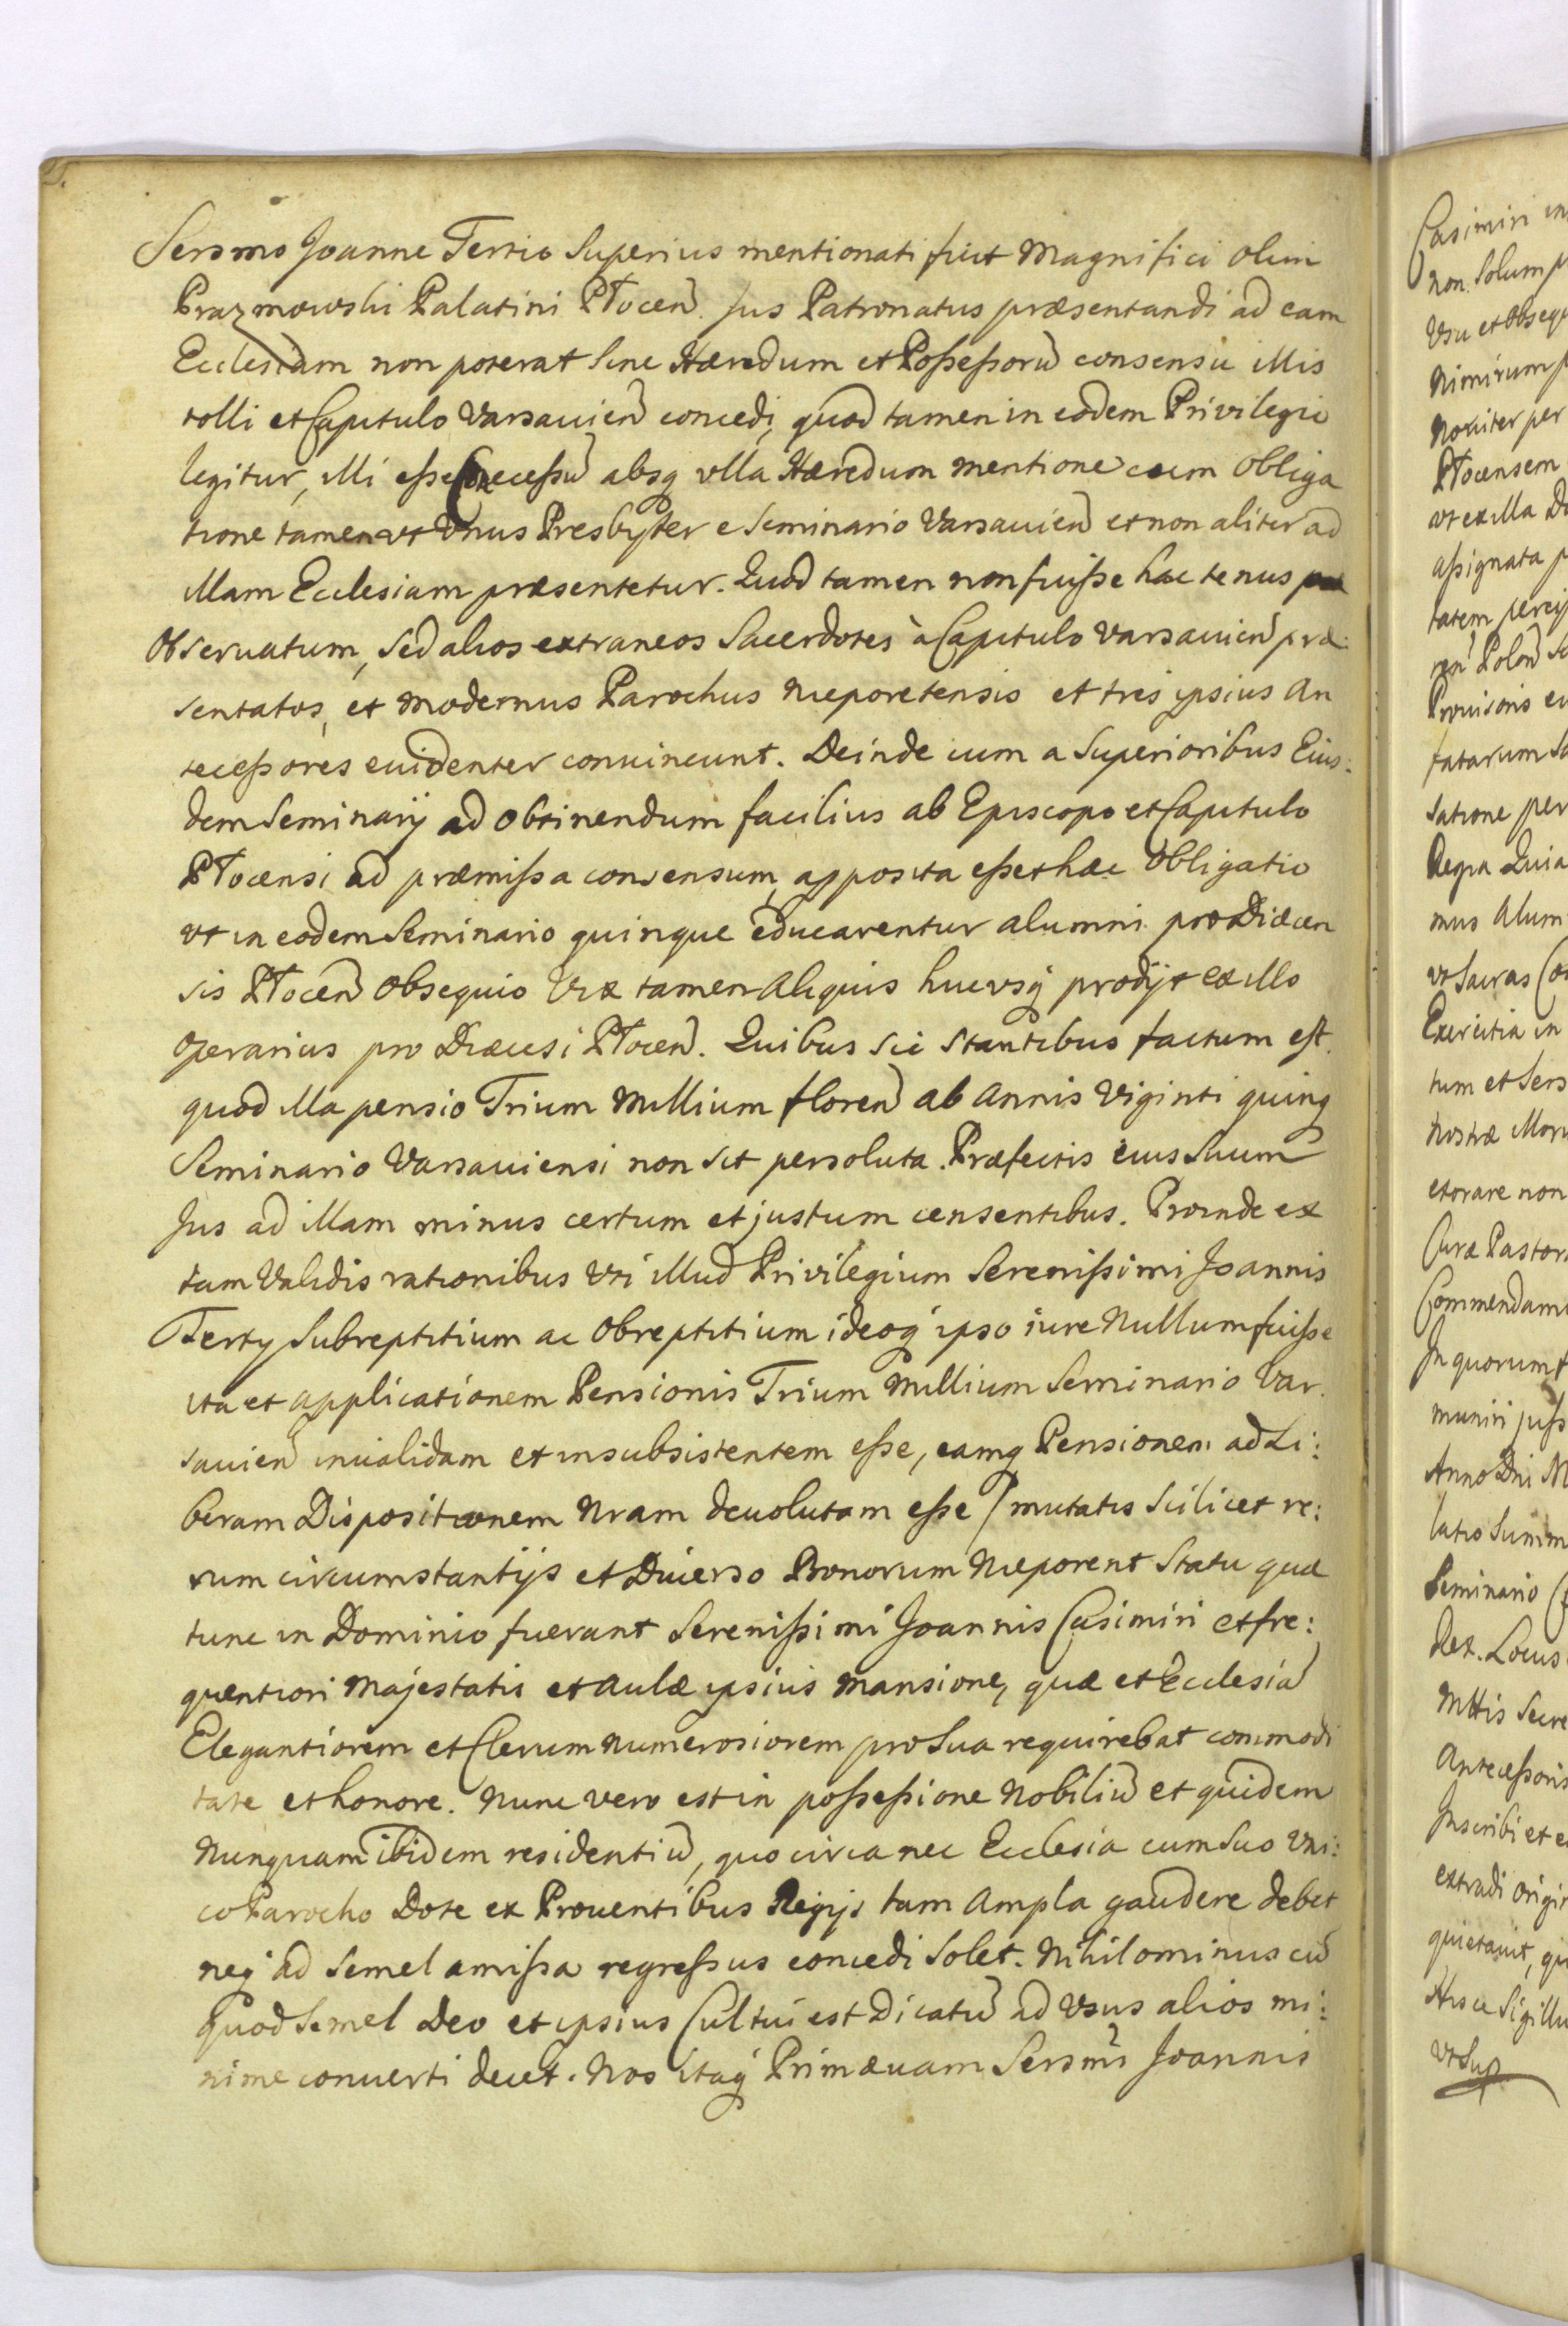 Sersmo Joanne Tertio Superius mentionati fuit Magnifici olim
Prazmowski Palatini Płocen. Jus Patronatus præsentandi ad eam
Ecclesiam non poterat sine Hæredum et Possessorū consensu illis
tolli et Capitulo Varsauien concedi, quod tamen in eodem Privilegio
legitur, illi esse Concessū absq vlla Hæredum mentione cum obliga
tione tamen vt Vnus Presbyter e Seminario Varsauien et non aliter ad
illam Ecclesiam præsentetur. Quod tamen non fuisse hactenus
Observatum, sed alios extraneos Sacerdotes à Capitulo Varsauien præ:
sentatos, et modernus Parochus Nieporetensis et tres ipsius An
tecessores euidenter conuincunt. Deinde cum a Superioribus Eius:
dem Seminarij ad obtinendum facilius ab Episcopo et Capitulo
Płocensi ad præmissa consensum, apposita esset hæc Obligatio
vt in eodem Seminario quinque educarentur alumni pro Diæcen
sis Płocen Obsequio Vix tamen Aliquis hucvsq prodijt ex illo
Operarius pro Diæcesi Płocen. Quibus sic stantibus factum est.
quod illa pensio Trium Millium floren ab Annis Viginti quinq
Seminario Varsauiensi non sit persoluta. Præfectis eius Suum
Jus ad illam minus certum et justum censentibus. Proinde ex
tam Validis rationibus Vti illud Privilegium Serenissimi Joannis
Tertij Subreptitium ac Obreptitium ideoq ipso iure Nullum fuisse
ita et applicationem Pensionis Trium Millium Seminario Var.
sauien inualidam et insubsistentem esse, eamq Pensionem ad Li:
beram Dispositionem Nram deuolutam esse / mutatis Scilicet re:
rum circumstantijs et Diuerso Bonorum Nieporent Statu quæ
tunc in Dominio fuerant Serenissimi Joannis Casimiri et fre:
quentiori Majestatis et Aulæ ipsius Mansione, quæ et Ecclesiā
Elegantiorem et Clerum numerosiorem pro Sua requirebat commodi
tate et honore. Nunc vero est in possessione Nobiliū et quidem
Nunquam ibidem residentiū, quo circa nec Ecclesia cum Suo Vni:
co Parocho Dote ex Prouentibus Regijs tam Ampla gaudere debet
neq ad semel amissa regressus concedi solet. Nihilominus cū
quod Semel Deo et ipsius Cultui est Dicatū ad Vsus alios mi:
nime conuerti decet. Nos itaq Primæuam Sersmi Joannis
Casimiri in
non Solum
Vsu et Obsequ
Nimirum
Noviter per
Płocensem
vt ex illa
assignata
tatem
Polon
Provisoris
Sa
satione per
Regia Quia
mus Alum
vt Sacras
Exercitia in
tum et Sers
Nostræ
et orare non
Curæ Pastor
Commendam
In quorum
muniri juss
Anno Dni M
latio Summ
Seminario
Rex. Locus
Mttis Secre
Antecessoris
Inscribi et
extradi origi
quietauit,
Hisce Sigillu
Vt Sup